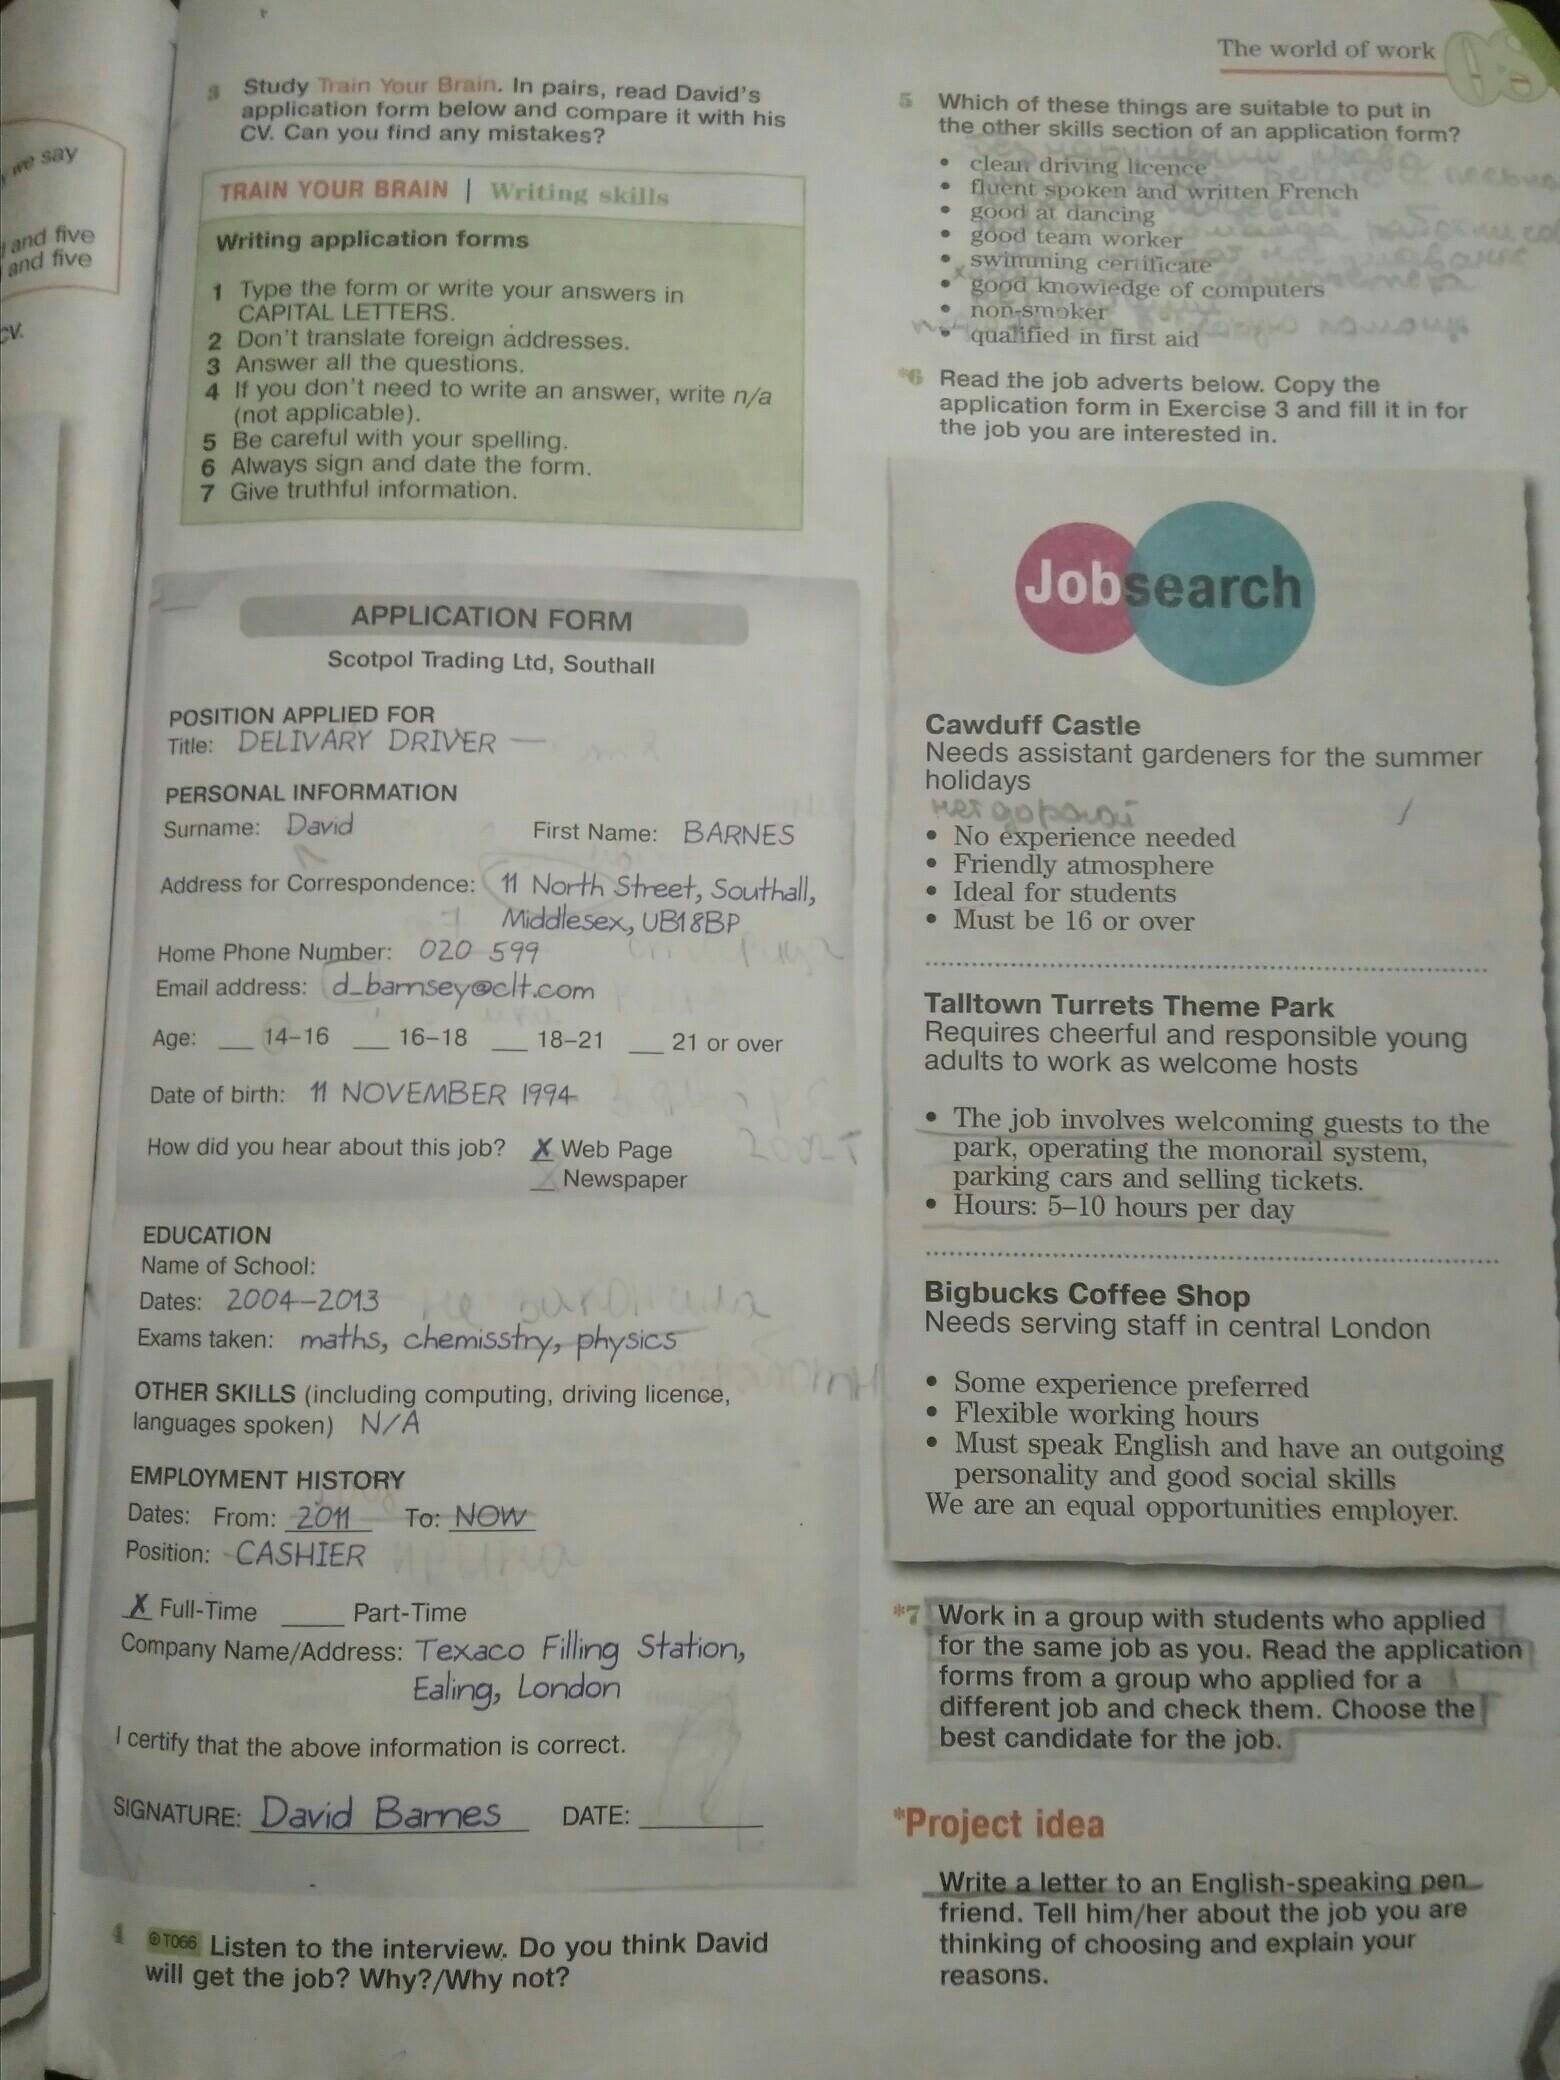 we say
and five
and five
CV.
The world of work
3 Study Train Your Brain. In pairs, read David's
application form below and compare it with his
CV. Can you find any mistakes?
TRAIN YOUR BRAIN | Writing skills
Writing application forms
1 Type the form or write your answers in
CAPITAL LETTERS.
2 Don't translate foreign addresses.
3 Answer all the questions.
4 If you don't need to write an answer, write n/a
(not applicable).
5 Be careful with your spelling.
6 Always sign and date the form.
7 Give truthful information.
APPLICATION FORM
Scotpol Trading Ltd, Southall
POSITION APPLIED FOR
Title: DELIVARY DRIVER
PERSONAL INFORMATION
Surname: David First Name: BARNES
Address for Correspondence: 11 North Street, Southall,
Middlesex, UB18BP
Home Phone Number: 020 599
Email address: d_barnsey@clt.com
Age: __ 14–16 __ 16–18 __ 18–21 __ 21 or over
Date of birth: 11 NOVEMBER 1994
How did you hear about this job? X Web Page
__ Newspaper
EDUCATION
Name of School:
Dates: 2004–2013
Exams taken: maths, chemisstry, physics
OTHER SKILLS (including computing, driving licence,
languages spoken) N/A
EMPLOYMENT HISTORY
Dates: From: 2011 To: NOW
Position: CASHIER
X Full-Time ____ Part-Time
Company Name/Address: Texaco Filling Station,
Ealing, London
I certify that the above information is correct.
SIGNATURE: David Barnes DATE: ________
4 T066 Listen to the interview. Do you think David
will get the job? Why?/Why not?
5 Which of these things are suitable to put in
the other skills section of an application form?
• clean driving licence
• fluent spoken and written French
• good at dancing
• good team worker
• swimming certificate
• good knowledge of computers
• non-smoker
• qualified in first aid
*6 Read the job adverts below. Copy the
application form in Exercise 3 and fill it in for
the job you are interested in.
Jobsearch
Cawduff Castle
Needs assistant gardeners for the summer
holidays
• No experience needed
• Friendly atmosphere
• Ideal for students
• Must be 16 or over
Talltown Turrets Theme Park
Requires cheerful and responsible young
adults to work as welcome hosts
• The job involves welcoming guests to the
park, operating the monorail system,
parking cars and selling tickets.
• Hours: 5–10 hours per day
Bigbucks Coffee Shop
Needs serving staff in central London
• Some experience preferred
• Flexible working hours
• Must speak English and have an outgoing
personality and good social skills
We are an equal opportunities employer.
*7 Work in a group with students who applied
for the same job as you. Read the application
forms from a group who applied for a
different job and check them. Choose the
best candidate for the job.
*Project idea
Write a letter to an English-speaking pen
friend. Tell him/her about the job you are
thinking of choosing and explain your
reasons.